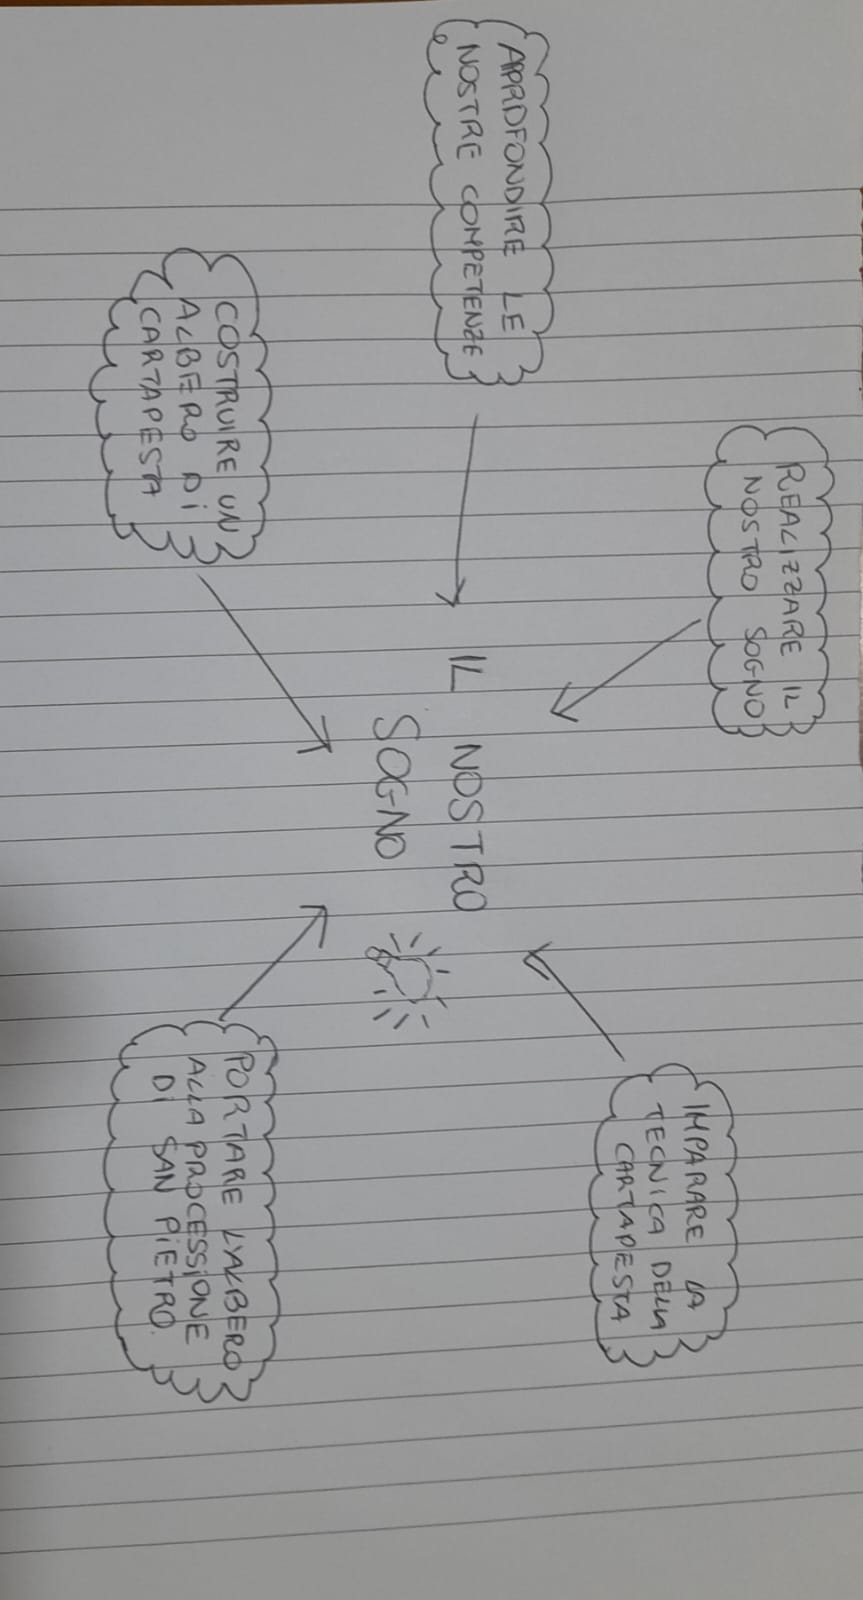 REALIZZARE IL
NOSTRO SOGNO
APPROFONDIRE LE
NOSTRE COMPETENZE
IMPARARE LA
TECNICA DELLA
CARTAPESTA
IL NOSTRO
SOGNO
COSTRUIRE UN
ALBERO DI
CARTAPESTA
PORTARE L'ALBERO
ALLA PROCESSIONE
DI SAN PIETRO.